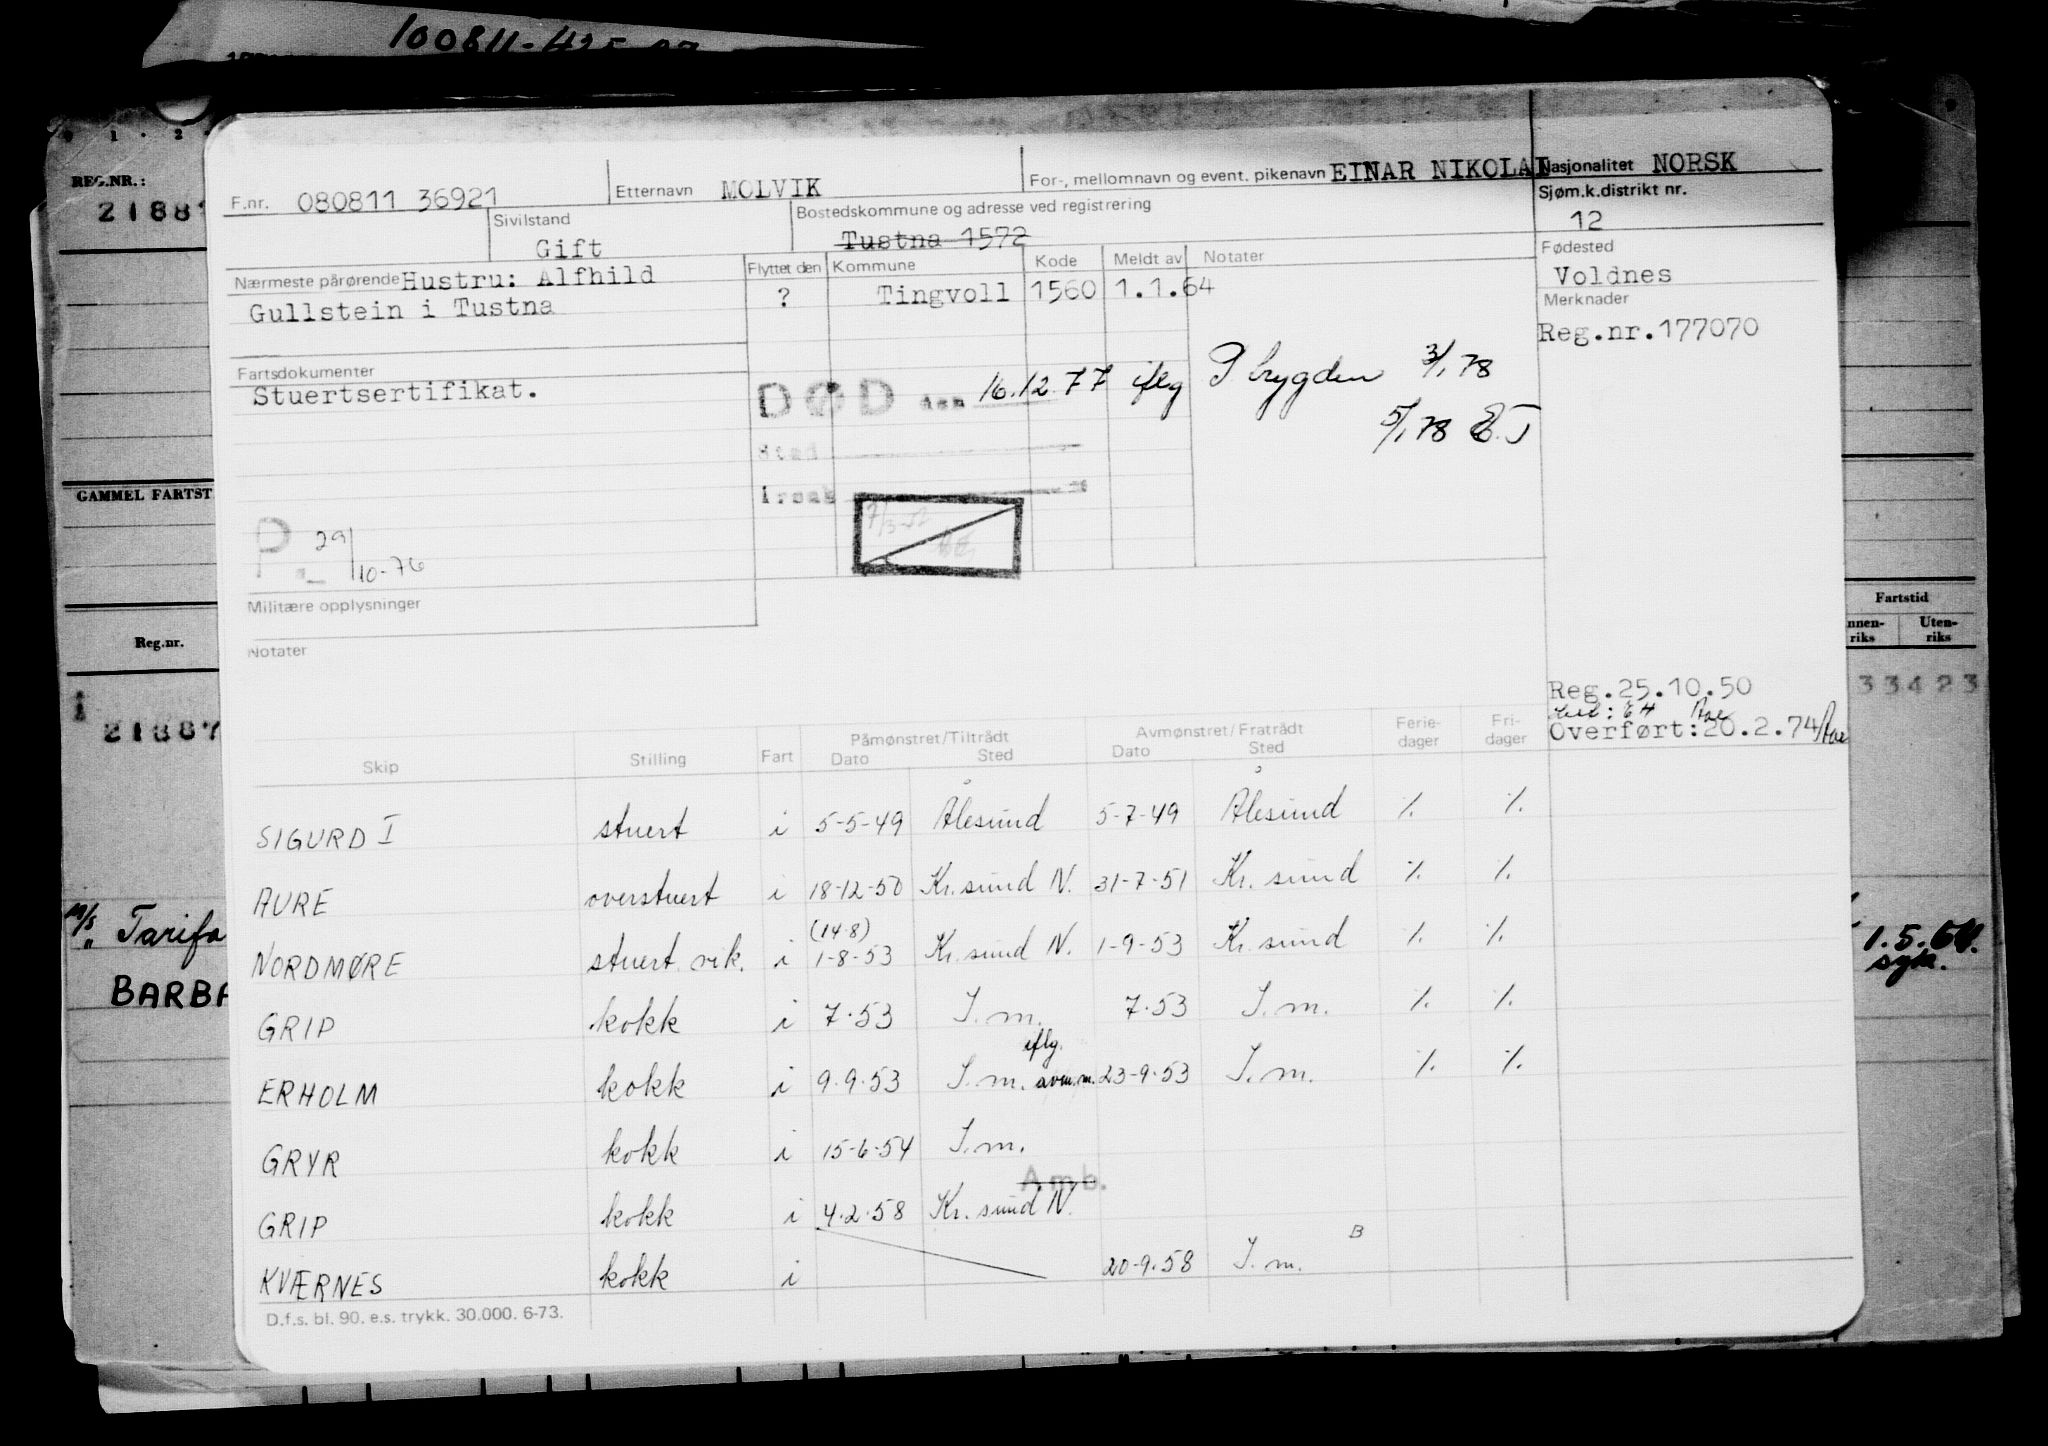 100811-425
REG.NR.:
F.nr. 080811 36921 Etternavn MOLVIK For-, mellomnavn og event. pikenavn EINAR NIKOLAI Nasjonalitet NORSK
Sivilstand Gift
Bostedskommune og adresse ved registrering
Tustna 1572
Sjøm.k.distrikt nr.
12
Nærmeste pårørende Hustru: Alfhild
Gullstein i Tustna
Flyttet den Kommune Kode Meldt av Notater
? Tingvoll 1560 1.1.64
Fødested
Voldnes
Merknader
Reg.nr.177070
Fartsdokumenter
Stuertsertifikat.
DØD den 16.12.77 iflg P brygden 3/1 78
5/1 78
Sted
Årsak
P. 29/10-76
7/3-52
Militære opplysninger
Notater
Reg.25.10.50
Overført:20.2.74
Skip Stilling Fart Påmønstret/Tiltrådt Dato Sted Avmønstret/Fratrådt Dato Sted Ferie-dager Fri-dager
SIGURD I stuert i 5-5-49 Ålesund 5-7-49 Ålesund ٪ ٪
AURE overstuert i 18-12-50 Kr.sund N. 31-7-51 Kr.sund ٪ ٪
(14.8)
NORDMØRE stuert vik. i 1-8-53 Kr.sund N. 1-9-53 Kr.sund ٪ ٪
GRIP kokk i 7.53 I.m. 7.53 I.m. ٪ ٪
iflg.
ERHOLM kokk i 9.9.53 I.m. avm.m. 23-9.53 I.m. ٪ ٪
GRYR kokk i 15-6-54 I.m.
Amb.
GRIP kokk i 4.2.58 Kr.sund N.
KVÆRNES kokk i 20-9.58 I.m. B
D.f.s. bl. 90. e.s. trykk. 30.000. 6-73.
GAMMEL FARTST
Reg.nr.
21887
M/S Tarifa
" BARBA
Fartstid
Innen-riks Uten-riks
33423
1.5.64.
syk.